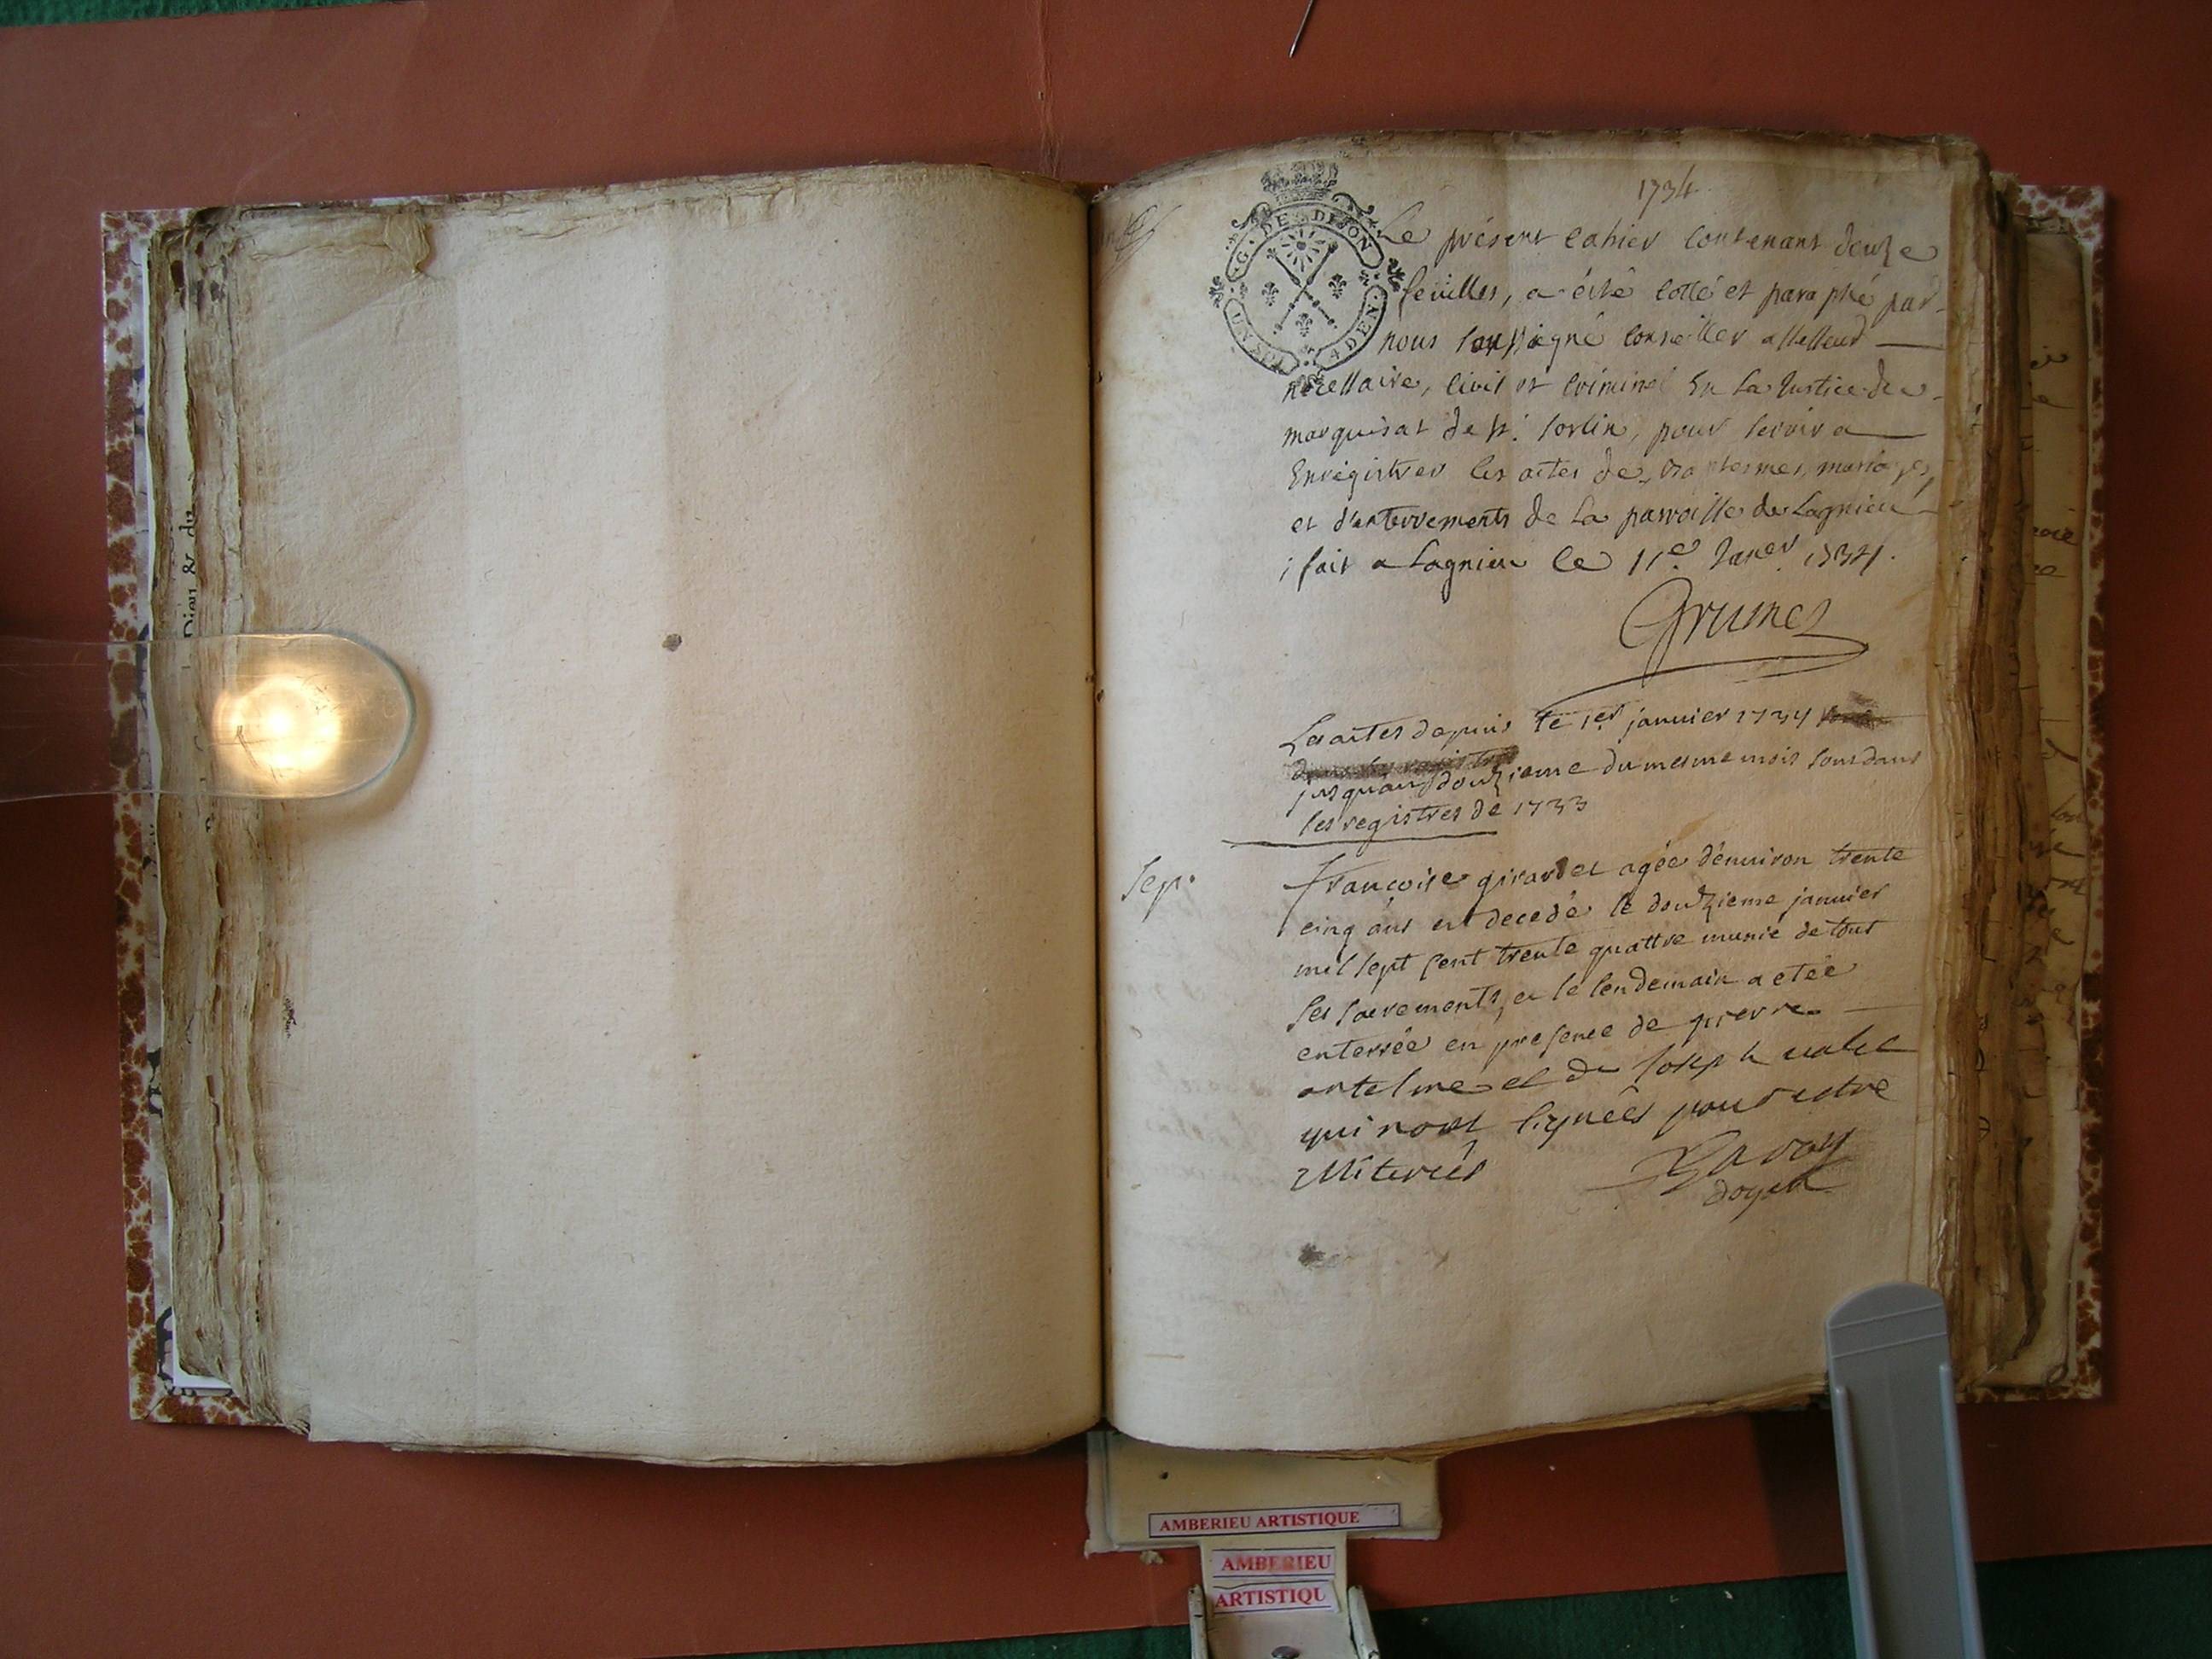 1734
G. DE DIJON
UN SOL
4 DEN.
Le présent Cahier Contenant douze
feuilles, a été Cotté et paraphé par
nous soussigné Conseiller assesseur
nécessaire, Civil et Criminel En La Justice de
marquisat de St. Sorlin, pour servir a
Enregistrer les actes de baptesmes, mariages,
et d'enterrements de La parroisse de Lagnieu
; fait a Lagnieu le 11e. Janer 1734.
Grumet
Les actes depuis le 1er janvier 1734
jusquau douzieme du mesme mois sont dans
les registres de 1733
Sep.
françoise girardet agée d'enuiron trente
cinq ans est decedé le douzieme januier
mil sept cent trente quattre munie de tous
ses sacrements, et le lendemain a etée
enterrée en presence de pierre
antelme et de Joseph
qui nont signées pour estre
illiterées
doyen
Dieu & du
AMBERIEU ARTISTIQUE
AMBERIEU
ARTISTIQU